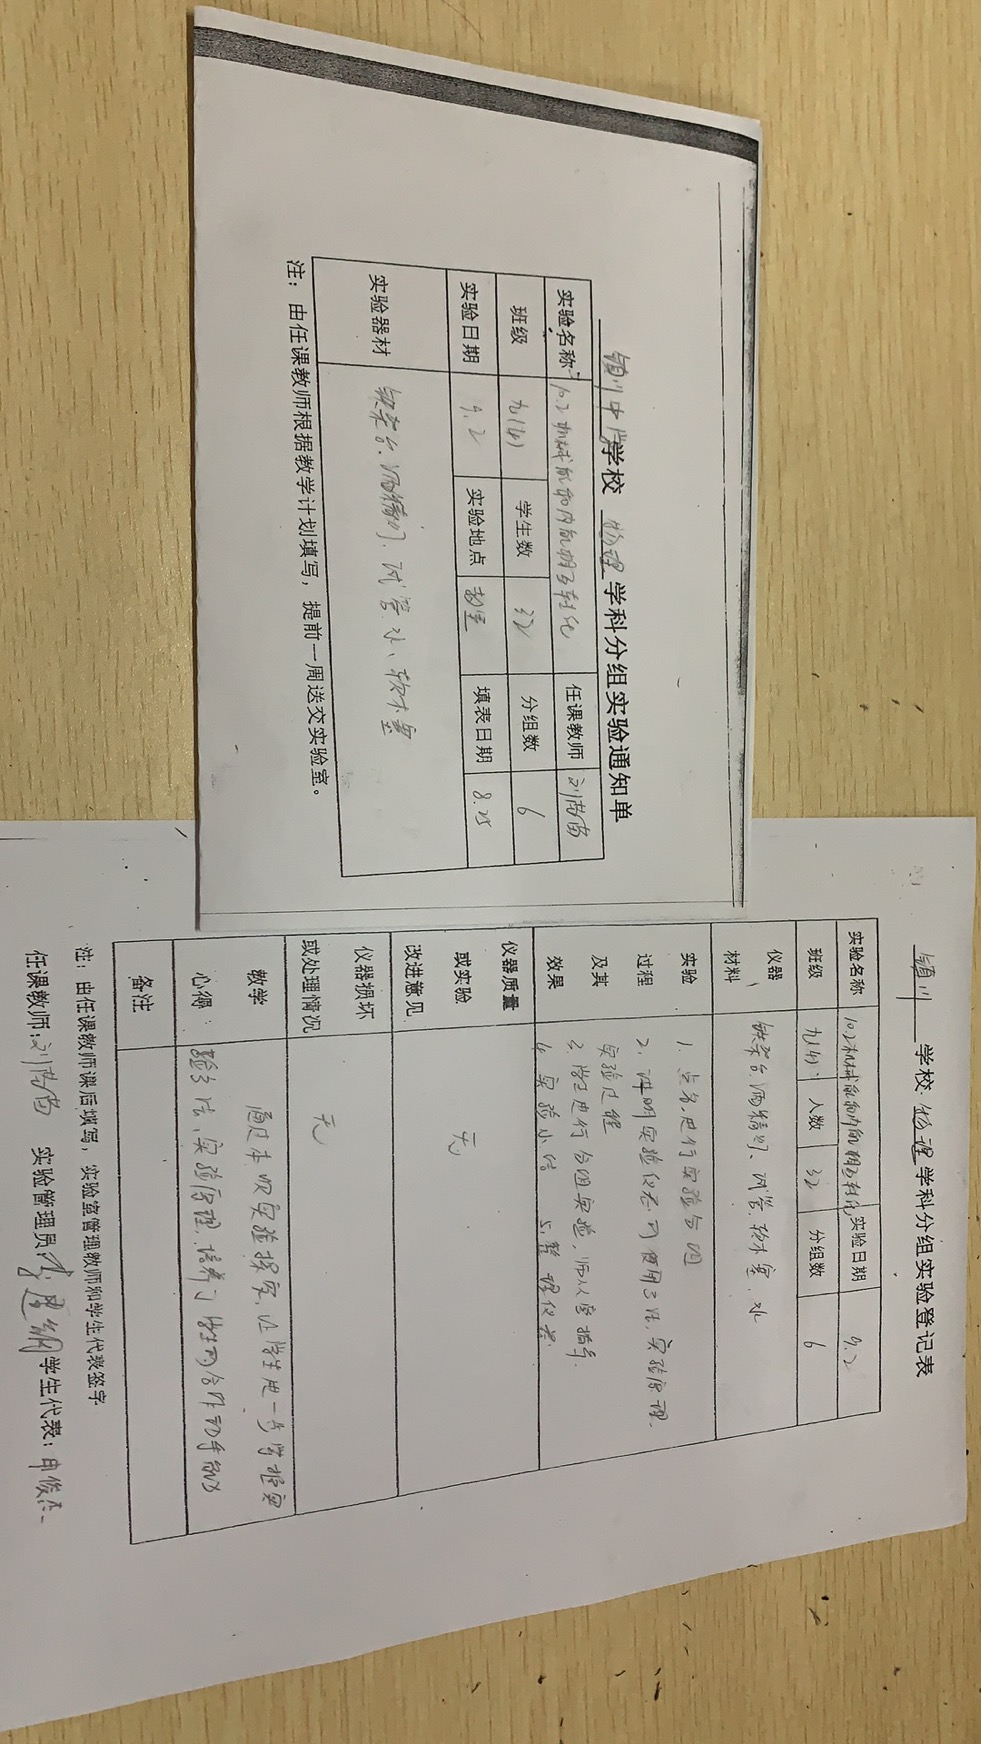 镇川中学学校 物理学科分组实验通知单
实验名称 10.2机械能和内能相互转化 任课教师
班级 九(4) 学生数 32 分组数 6
实验日期 9.2 实验地点 教室 填表日期 8.25
实验器材 铁架台、酒精灯、试管、水、软木塞
注：由任课教师根据教学计划填写，提前一周送交实验室。
镇川 学校 物理学科分组实验登记表
实验名称 10.2机械能和内能相互转化 实验日期 9.2
班级 九(4) 人数 32 分组数 6
仪器、材料 铁架台、酒精灯、试管、软木塞、水
实验过程及其效果 1. 点名,进行实验分组
2. 讲明实验仪器的使用方法、实验原理、
实验过程
3. 学生进行分组实验，师从旁指导
4. 实验小结 5. 整理仪器
仪器质量或实验改进意见 无
仪器损坏或处理情况 无
教学心得： 通过本次实验探究，让学生进一步掌握实
验方法、实验原理，培养了学生的合作动手能力
备注
注：由任课教师课后填写，实验室管理教师和学生代表签字
任课教师: 实验管理员: 李建纲 学生代表: